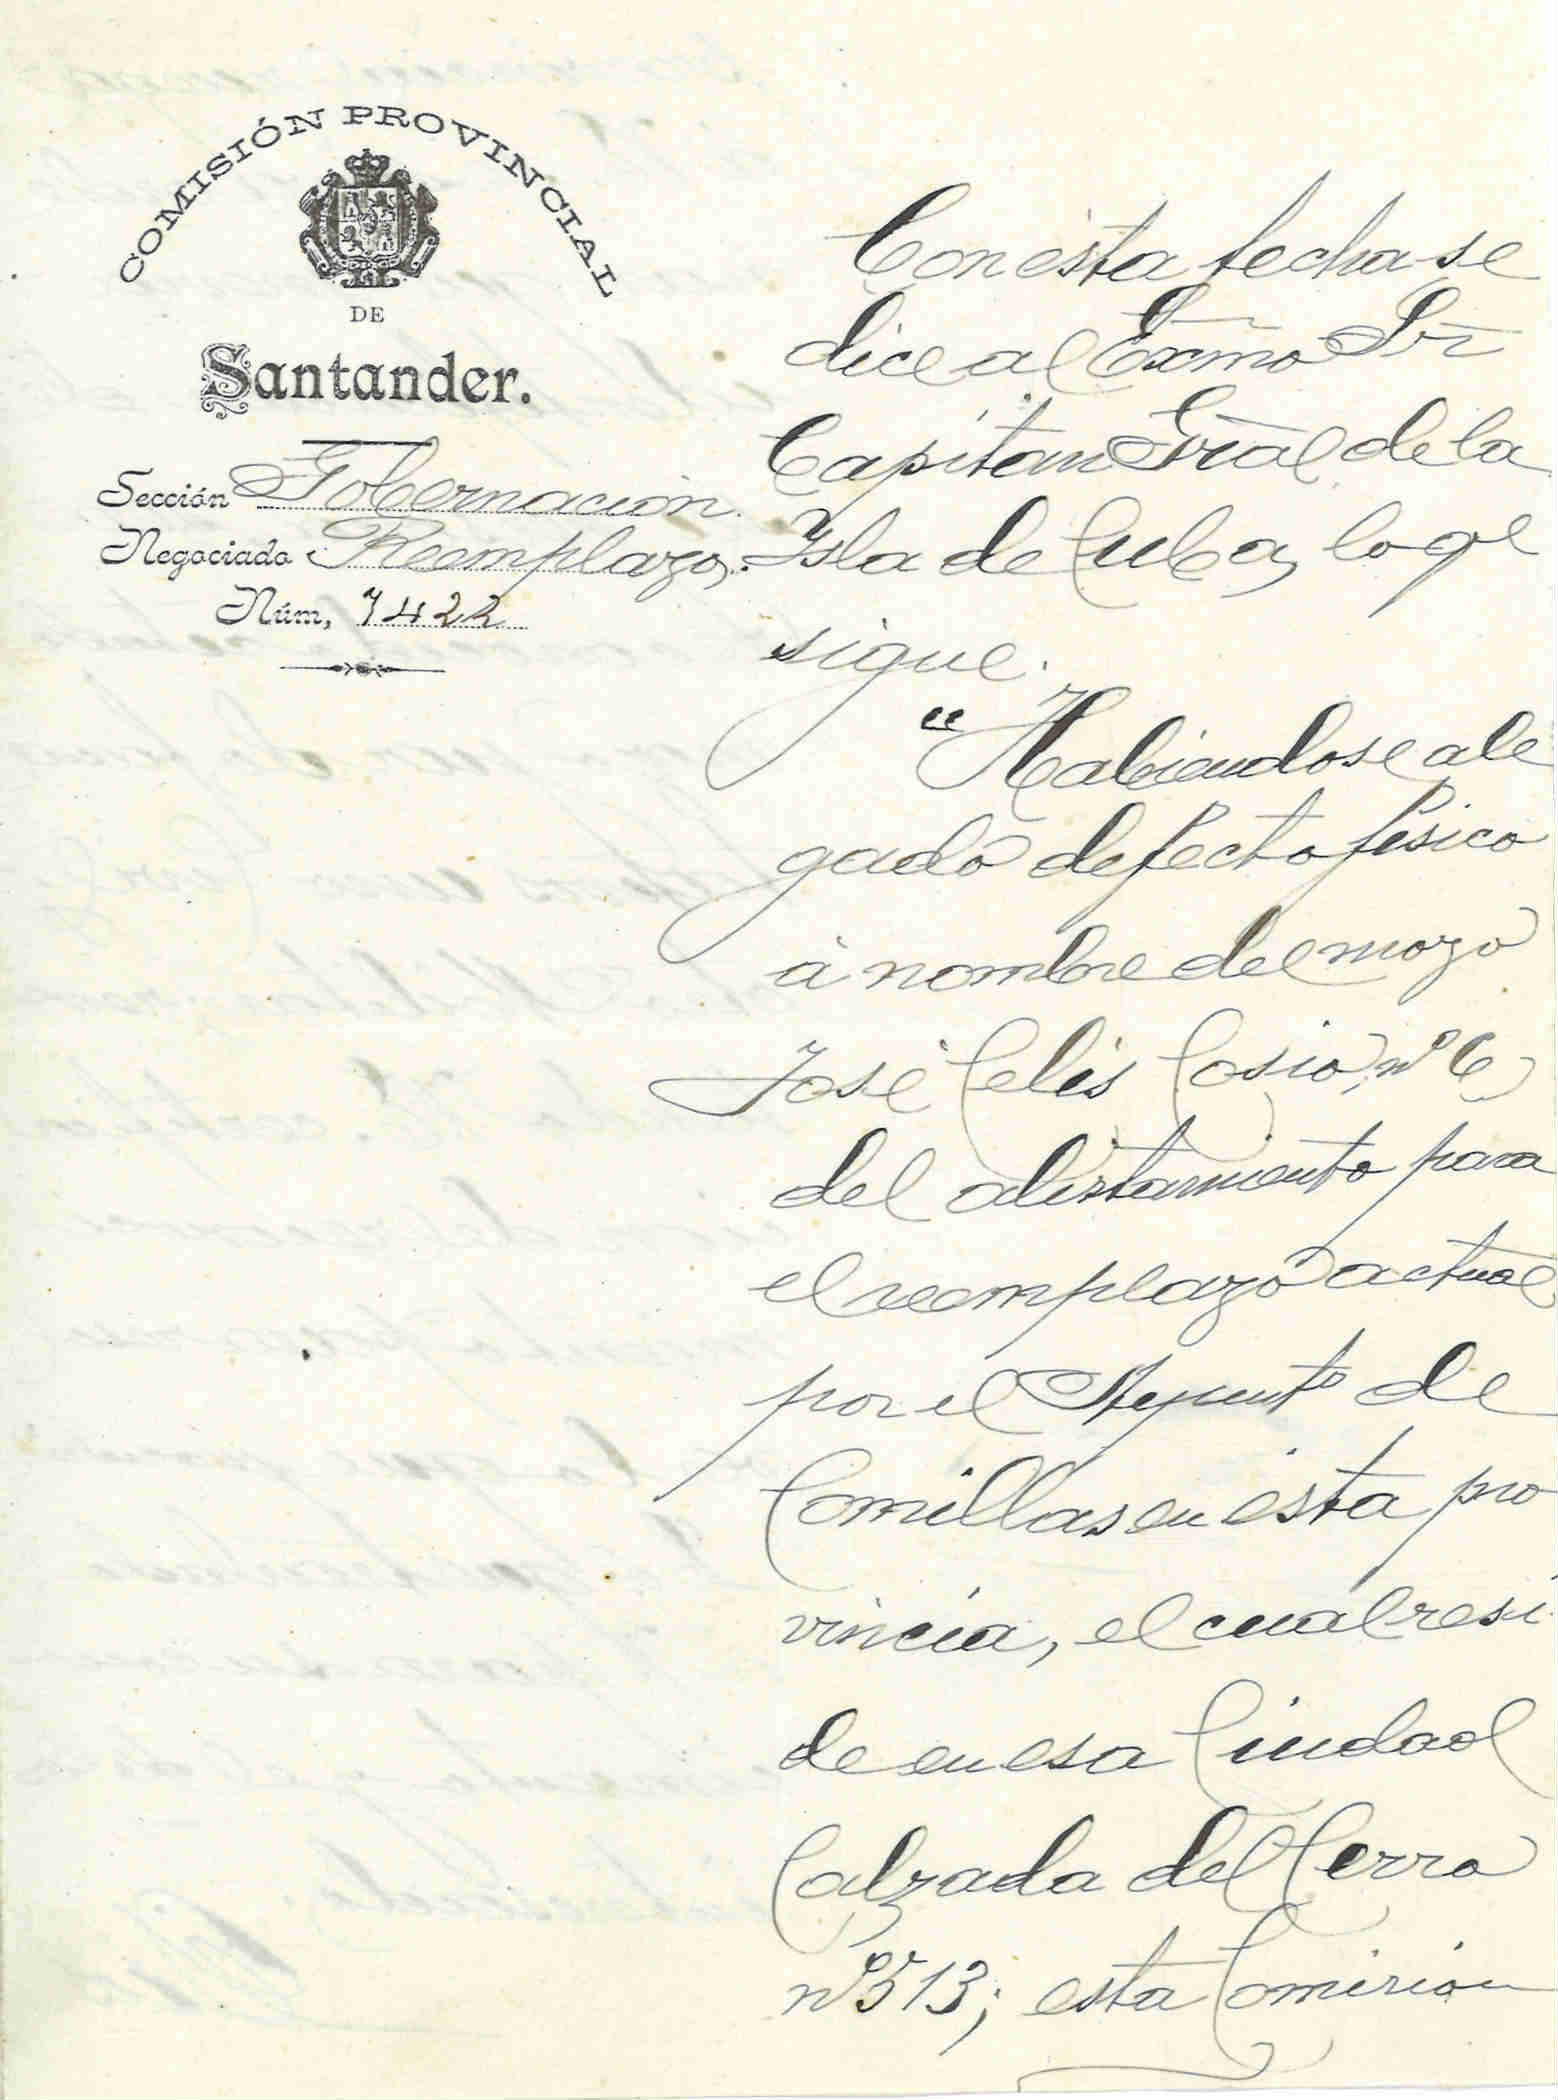 COMISIÓN PROVINCIAL
DE
Santander.
Sección Gobernación
Negociado Reemplazos.
Núm, 7422
Con ésta fecha se
dice al Excmo Sor
Capitan Gral de la
Isla de Cuba, lo qe
sigue.
"Habiéndose ale
gado defecto físico
á nombre del mozo
José Celis Cosio, nº 6
del alistamiento para
el reemplazo actual
por el Ayuntº de
Comillas en ésta pro
vincia, el cual resi
de en esa Ciudad
Calzada del Cerro
nº 513; esta Comisión